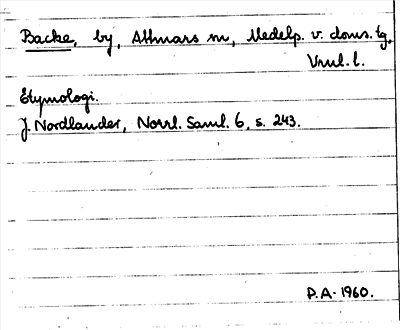 Backe, by, Attmars sn, Medelp. v. doms. tg,
Vnul. l.
Etymologi.
J. Nordlander, Norrl. Saml. 6, s. 243.
P.A. 1960.